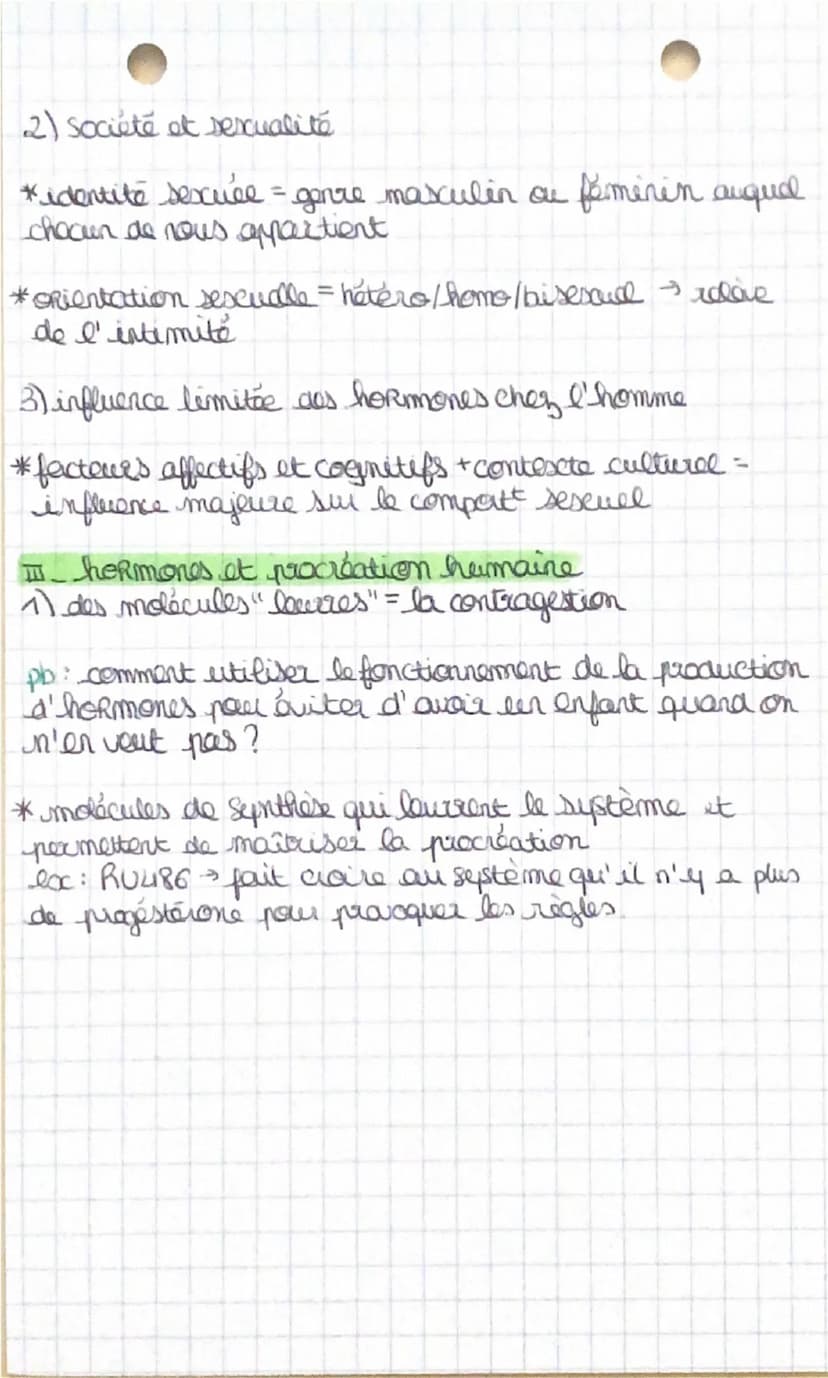 2) société et sexualité
* identité sexuée = genre masculin ou féminin auquel
chacun de nous appartient
* orientation sexuelle = hétéro/homo/bisexuel → relève
de l'intimité
3) influence limitée des hormones chez l'homme
* facteurs affectifs et cognitifs + contexte culturel =
influence majeure sur le comportt sexuel
III _ hormones et procréation humaine
1) des molécules "leurres" = la contragestion
pb : comment utiliser le fonctionnement de la production
d'hormones pour éviter d'avoir un enfant quand on
n'en veut pas ?
* molécules de synthèse qui leurrent le système et
permettent de maîtriser la procréation
ex : RU486 → fait croire au système qu'il n'y a plus
de progéstérone pour provoquer les règles